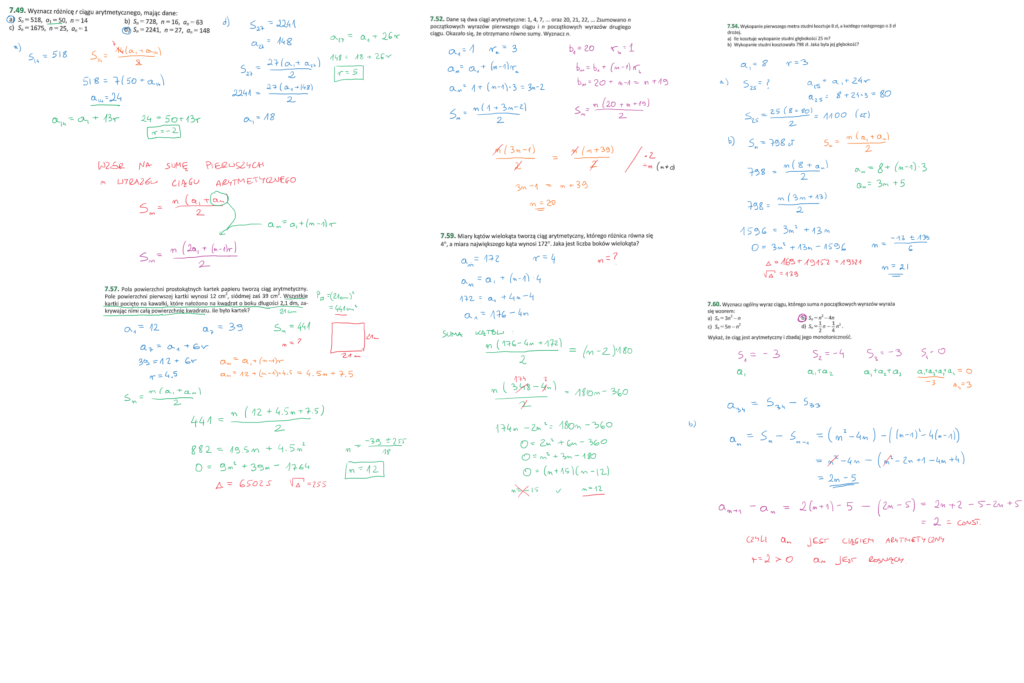 7.49. Wyznacz różnicę r ciągu arytmetycznego, mając dane:
a) Sₙ = 518, a₁ = 50, n = 14
b) Sₙ = 728, n = 16, aₙ = 63
c) Sₙ = 1675, n = 25, aₙ = 1
d) Sₙ = 2241, n = 27, aₙ = 148
a) S₁₄ = 518
Sₙ = 14(a₁ + a₁₄) / 2
518 = 7(50 + a₁₄)
a₁₄ = 24
a₁₄ = a₁ + 13r
24 = 50 + 13r
r = -2
d) S₂₇ = 2241
a₂₇ = 148
S₂₇ = 27(a₁ + a₂₇) / 2
2241 = 27(a₁ + 148) / 2
a₁ = 18
a₂₇ = a₁ + 26r
148 = 18 + 26r
r = 5
WZÓR NA SUMĘ PIERWSZYCH
n WYRAZÓW CIĄGU ARYTMETYCZNEGO
Sₙ = n(a₁ + aₙ) / 2
aₙ = a₁ + (n-1)r
Sₙ = n(2a₁ + (n-1)r) / 2
7.57. Pola powierzchni prostokątnych kartek papieru tworzą ciąg arytmetyczny.
Pole powierzchni pierwszej kartki wynosi 12 cm², siódmej zaś 39 cm². Wszystkie
kartki pocięto na kawałki, które nałożono na kwadrat o boku długości 2,1 dm, za-
krywając nimi całą powierzchnię kwadratu. Ile było kartek?
21cm
P = (21cm)²
= 441cm²
a₁ = 12
a₇ = 39
Sₙ = 441
n = ?
21cm
21cm
a₇ = a₁ + 6r
39 = 12 + 6r
r = 4,5
aₙ = a₁ + (n-1)r
aₙ = 12 + (n-1)·4.5 = 4.5n + 7.5
Sₙ = n(a₁ + aₙ) / 2
441 = n(12 + 4.5n + 7.5) / 2
882 = 19.5n + 4.5n²
0 = 9n² + 39n - 1764
Δ = 65025 √Δ = 255
n = (-39 ± 255) / 18
n = 12
7.52. Dane są dwa ciągi arytmetyczne: 1, 4, 7, ... oraz 20, 21, 22, ... Zsumowano n
początkowych wyrazów pierwszego ciągu i n początkowych wyrazów drugiego
ciągu. Okazało się, że otrzymano równe sumy. Wyznacz n.
a₁ = 1 rₐ = 3
b₁ = 20 r = 1
aₙ = a₁ + (n-1)rₐ
bₙ = b₁ + (n-1)r
aₙ = 1 + (n-1)·3 = 3n-2
bₙ = 20 + n-1 = n+19
Sₙ = n(1 + 3n-2) / 2
Sₙ = n(20 + n+19) / 2
n(3n-1) / 2 = n(n+39) / 2
3n-1 = n+39
n = 20
7.59. Miary kątów wielokąta tworzą ciąg arytmetyczny, którego różnica równa się
4°, a miara największego kąta wynosi 172°. Jaka jest liczba boków wielokąta?
aₙ = 172 r = 4 n = ?
aₙ = a₁ + (n-1) 4
172 = a₁ + 4n-4
a₁ = 176 - 4n
SUMA KĄTÓW:
n(176-4n+172) / 2 = (n-2)180
n(348-4n) / 2 = 180n - 360
174n - 2n² = 180n - 360
0 = 2n² + 6n - 360
0 = n² + 3n - 180
0 = (n+15)(n-12)
n = -15 v n = 12
7.54. Wykopanie pierwszego metra studni kosztuje 8 zł, a każdego następnego o 3 zł
drożej.
a) Ile kosztuje wykopanie studni głębokości 25 m?
b) Wykopanie studni kosztowało 798 zł. Jaka była jej głębokość?
a₁ = 8 r = 3
a) S₂₅ = ?
a₂₅ = a₁ + 24r
a₂₅ = 8 + 25·3 = 80
S₂₅ = 25(8+80) / 2 = 1100 (zł)
b) Sₙ = 798 zł
Sₙ = n(a₁ + aₙ) / 2
798 = n(8 + aₙ) / 2
aₙ = 8 + (n-1)·3
aₙ = 3n + 5
798 = n(3n + 13) / 2
1596 = 3n² + 13n
0 = 3n² + 13n - 1596
Δ = 169 + 19152 = 19321
√Δ = 139
n = (-13 ± 139) / 6
n = 21
7.60. Wyznacz ogólny wyraz ciągu, którego suma n początkowych wyrazów wyraża
się wzorem:
a) Sₙ = 3n² - n
b) Sₙ = n² - 4n
c) Sₙ = 5n - n²
Wykaż, że ciąg jest arytmetyczny i zbadaj jego monotoniczność.
S₁ = -3 S₂ = -4 S₃ = -3 S = 0
a₁ a₁+a₂ a₁+a₂+a₃ a₁+a₂+a₃+a₄ = 0
-3
a₄ = 3
a₃₄ = S₃₄ - S₃₃
b)
aₙ = Sₙ - Sₙ₋₁ = (n² - 4n) - ((n-1)² - 4(n-1))
= n² - 4n - (n² - 2n + 1 - 4n + 4)
= 2n - 5
aₙ₊₁ - aₙ = 2(n+1) - 5 - (2n-5) = 2n + 2 - 5 - 2n + 5
= 2 = CONST.
CZYLI aₙ JEST CIĄGIEM ARYTMETYCZNY
r = 2 > 0 aₙ JEST ROSNĄCY